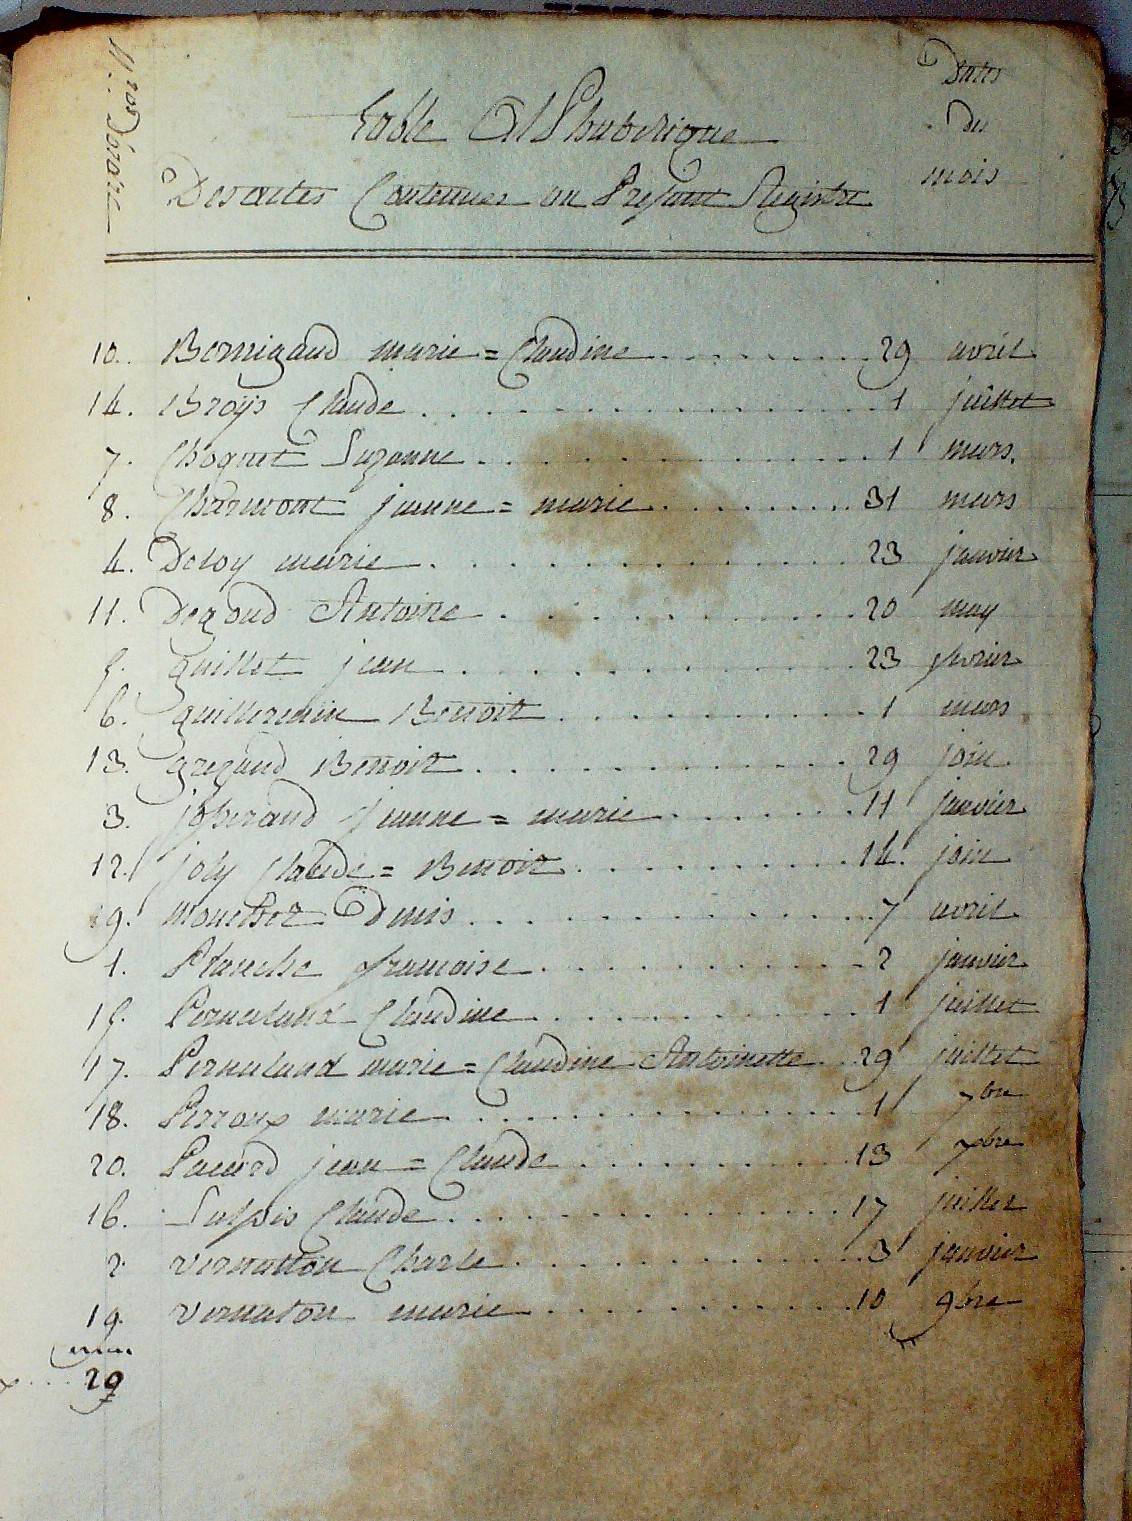 Nos D'ordre
Table Alphabetique
Des actes Contenues au Present Registre
Dates
des
mois
10. Bernigaud marie = Claudine 29 avril
14. Broÿs Claude 1 juillet
7. Choquet Suzanne 1 mars
8. Charmont jeanne = marie 31 mars
4. Deloy marie 23 janvier
11. Degoud Antoine 20 may
5. guillet jean 23 fevrier
6. guillermin Benoit 1 mars
13. gregaud Benoit 29 join
3. josserand jeanne = marie 11 janvier
12. joly Claude = Benoit 14. join
9. Denis 7 avril
1. Planche francoise 2 janvier
15. Claudine 1 juillet
17. marie = Claudine Antoinette 29 juillet
18. Perroux marie 1 7bre
20. Pacard jean = Claude 13 7bre
16. Sulpis Claude 17 juillet
2. vernatton Charle 3 janvier
19. vernaton marie 10 9bre
29